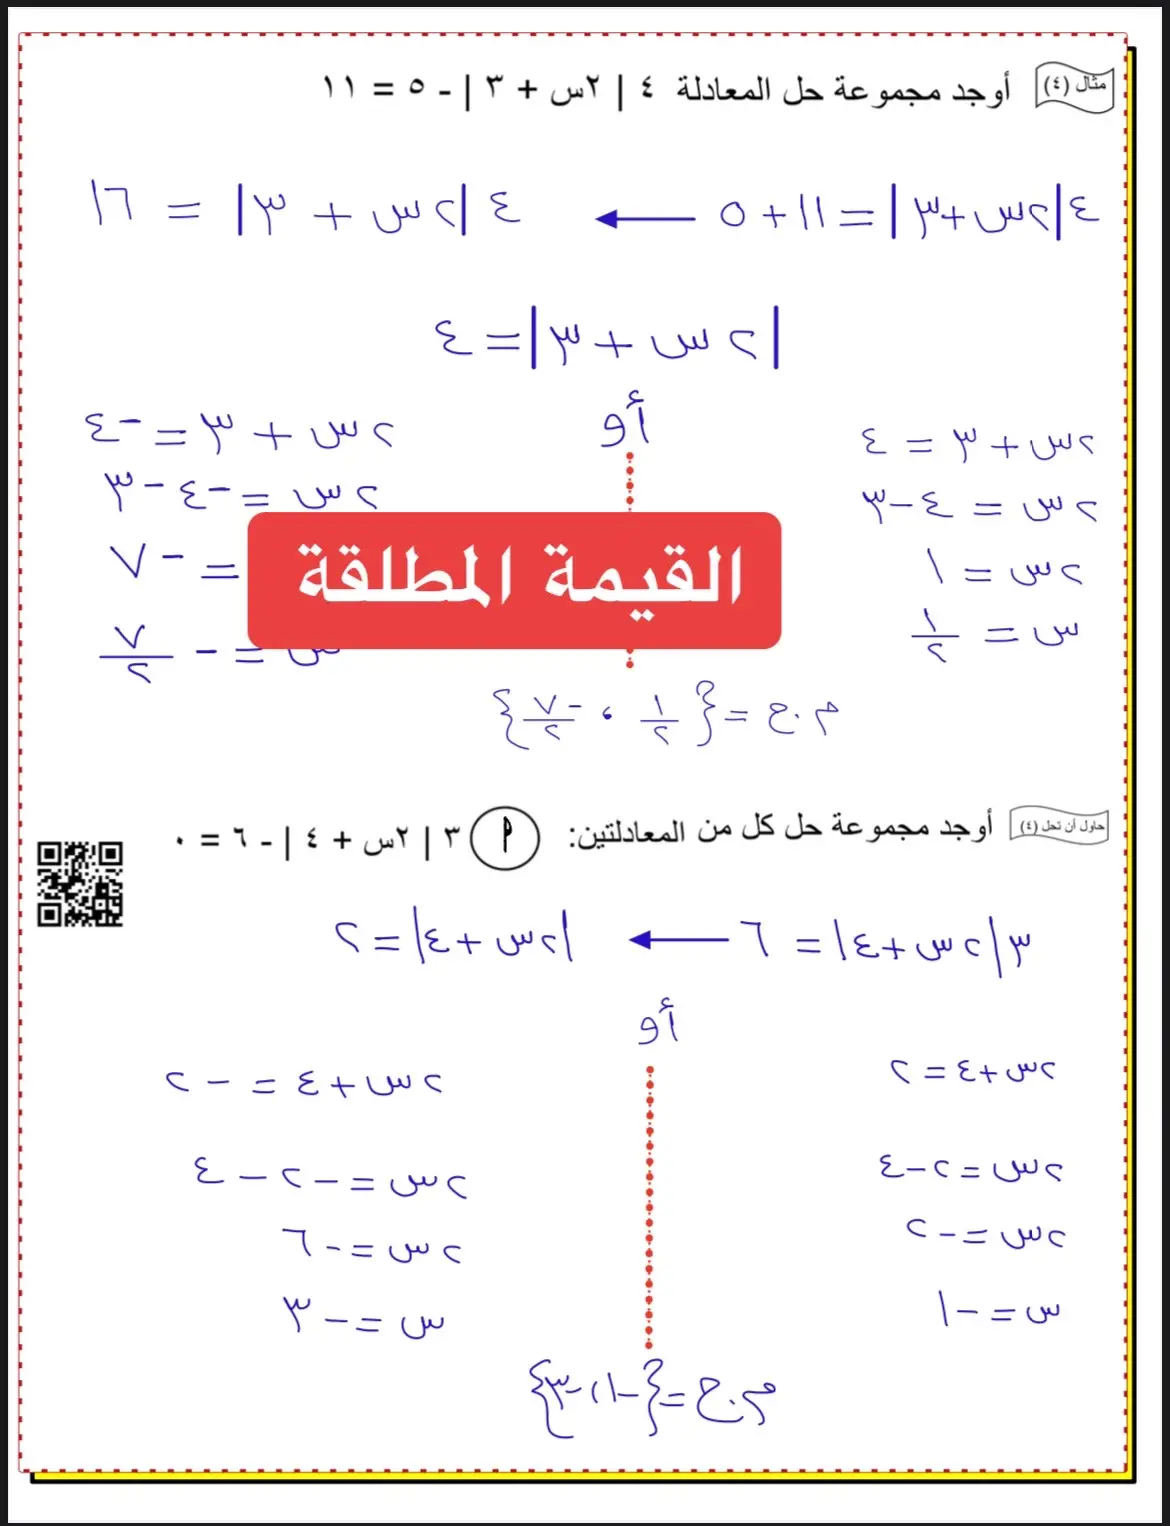 مثال (٤) أوجد مجموعة حل المعادلة ٤ | ٢س + ٣ | - ٥ = ١١
٤ |٢س+٣| = ١١+٥ ← ٤ |٢س + ٣| = ١٦
|٢س + ٣| = ٤
أو
٢س + ٣ = ٤
٢س = ٤-٣
٢س = ١
س = ١/٢
٢س + ٣ = -٤
٢س = -٤ -٣
= -٧
س = - ٧/٢
القيمة المطلقة
م.ح = { ١/٢ ، -٧/٢ }
حاول أن تحل (٤) أوجد مجموعة حل كل من المعادلتين: م ٣ | ٢س + ٤ | - ٦ = ٠
٣ |٢س+٤| = ٦ ← |٢س+٤| = ٢
أو
٢س+٤ = ٢
٢س = ٢-٤
٢س = -٢
س = -١
٢س+٤ = -٢
٢س = -٢ -٤
٢س = -٦
س = -٣
م.ح = {-١، -٣}